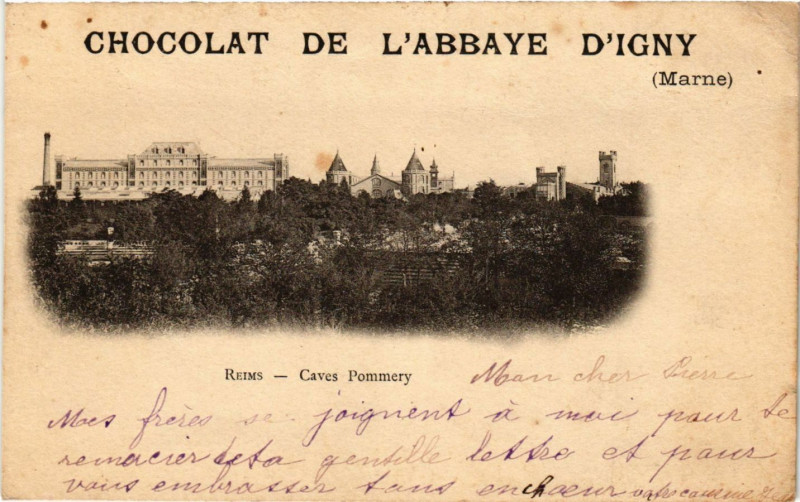 CHOCOLAT DE L'ABBAYE D'IGNY
(Marne)
REIMS — Caves Pommery
Mon cher Pierre
Mes frères se joignent à moi pour te
remercier de ta gentille lettre et pour
vous embrasser tous en chœur